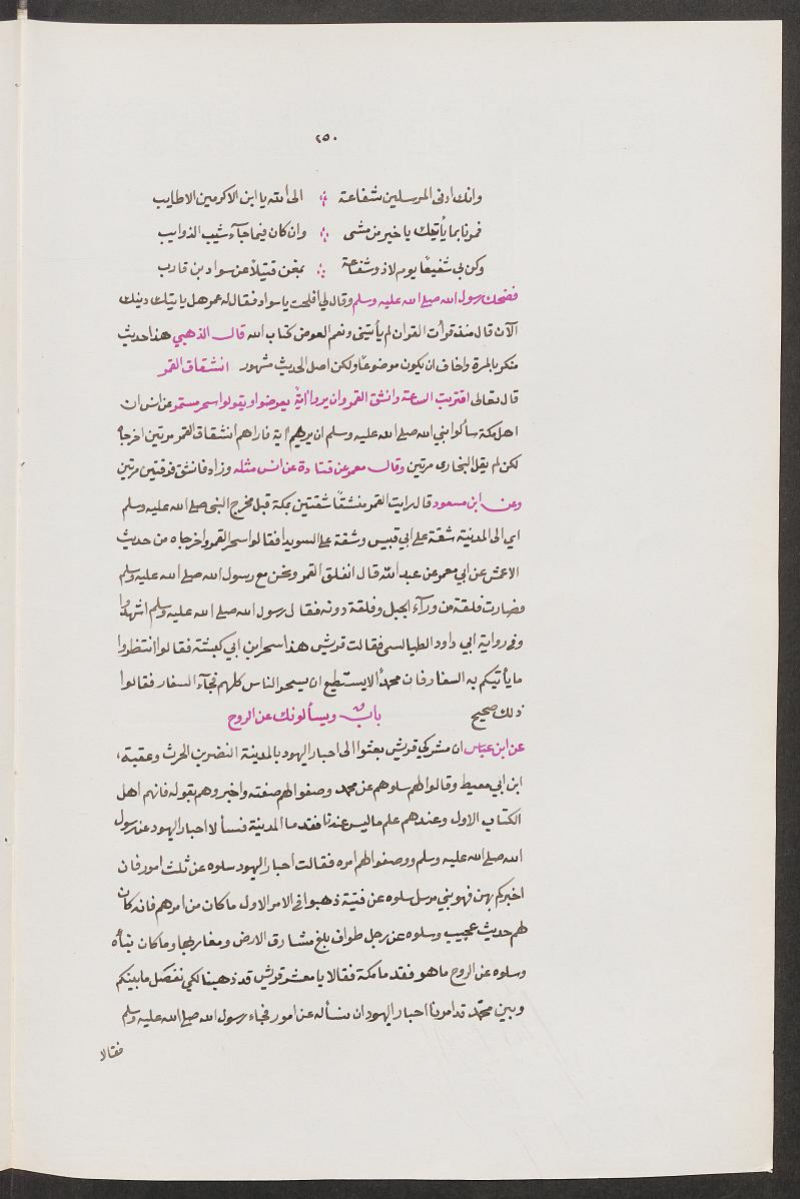 ٢٥٠
وانك ادنى المرسلين شفاعة ؛ الى الله يا ابن الاكرمين الاطايب
فمرنا بما يأتيك يا خير من مشى ؛ وان كان فيما جآء شيب الذوايب
وكن لي شفيعًا يوم لا ذو شفاعة ؛ بمغن فتيلاً عن سواد بن قارب
فضحك رسول الله صلى الله عليه وسلم وقال لي افلحت يا سواد فقال له عمر هل يا يتك دينك
الآن قال منذ قرأت القران لم يأتيني ونعم العوض كتاب الله قال الذهبي هذا حديث
منكر بالمرة واخاف ان يكون موضوعًا ولكن اصل الحديث مشهور انشقاق القمر
قال تعالى اقتربت الساعة وانشق القمر وان يروا اية يعرضوا ويقولوا سحر مستمر عن انس ان
اهل مكة سألوا نبي الله صلى الله عليه وسلم ان يريهم اية فاراهم انشقاق القمر مرتين اخرجاه
لكن لم يقل البخارى مرتين وقال معمر عن قتادة عن انس مثله وزاد فانشق فرقتين مرتين
وعن ابن مسعود قال رايت القمر منشقًا شقتين بمكة قبل مخرج النبى صلى الله عليه وسلم
اي الى المدينة شقة على ابي قبيس وشقة على السويدا فقالوا سحر القمر واخرجاه من حديث
الاعمش عن ابي معمر عن عبد الله قال انفلق القمر ونحن مع رسول الله صلى الله عليه وسلم
فصارت فلقة من ورآء الجبل وفلقة دونه فقال رسول الله صلى الله عليه وسلم اشهدوا
وفى رواية ابي داود الطيالسى فقالت قريش هذا سحر ابن ابي كبشة فقالوا انتظروا
ما يأتيكم به السفار فان محمدًا لا يستطيع ان يسحر الناس كلهم فجآء السفار فقالوا
ذلك صحيح باب ويسألونك عن الروح
عن ابن عباس ان مشركي قريش بعثوا الى احبار اليهود بالمدينة النضر بن الحرث وعقبة،
ابن ابي معيط وقالوا لهم سلوهم عن محمد وصفوا لهم صفته واخبروهم بقوله فانهم اهل
الكتاب الاول وعندهم علم ما ليس عندنا فقدما المدينة فسألا احبار اليهود عن رسول
الله صلى الله عليه وسلم ووصفوا لهم امره فقالت احبار اليهود سلوه عن ثلث امور فان
اخبركم بهن فهو نبي مرسل سلوه عن فتية ذهبوا فى الامر الاول ما كان من امرهم فانه كان
لهم حديث عجيب وسلوه عن رجل طواف بلغ مشارق الارض ومغاربها وما كان نبأه
وسلوه عن الروح ما هو فقدما مكة فقالا يا معشر قريش قد ذهبنا لكي نفصل ما بينكم
وبين محمد قد امرنا احبار اليهود ان نسأله عن امور فجاء رسول الله صلى الله عليه وسلم
فقالا